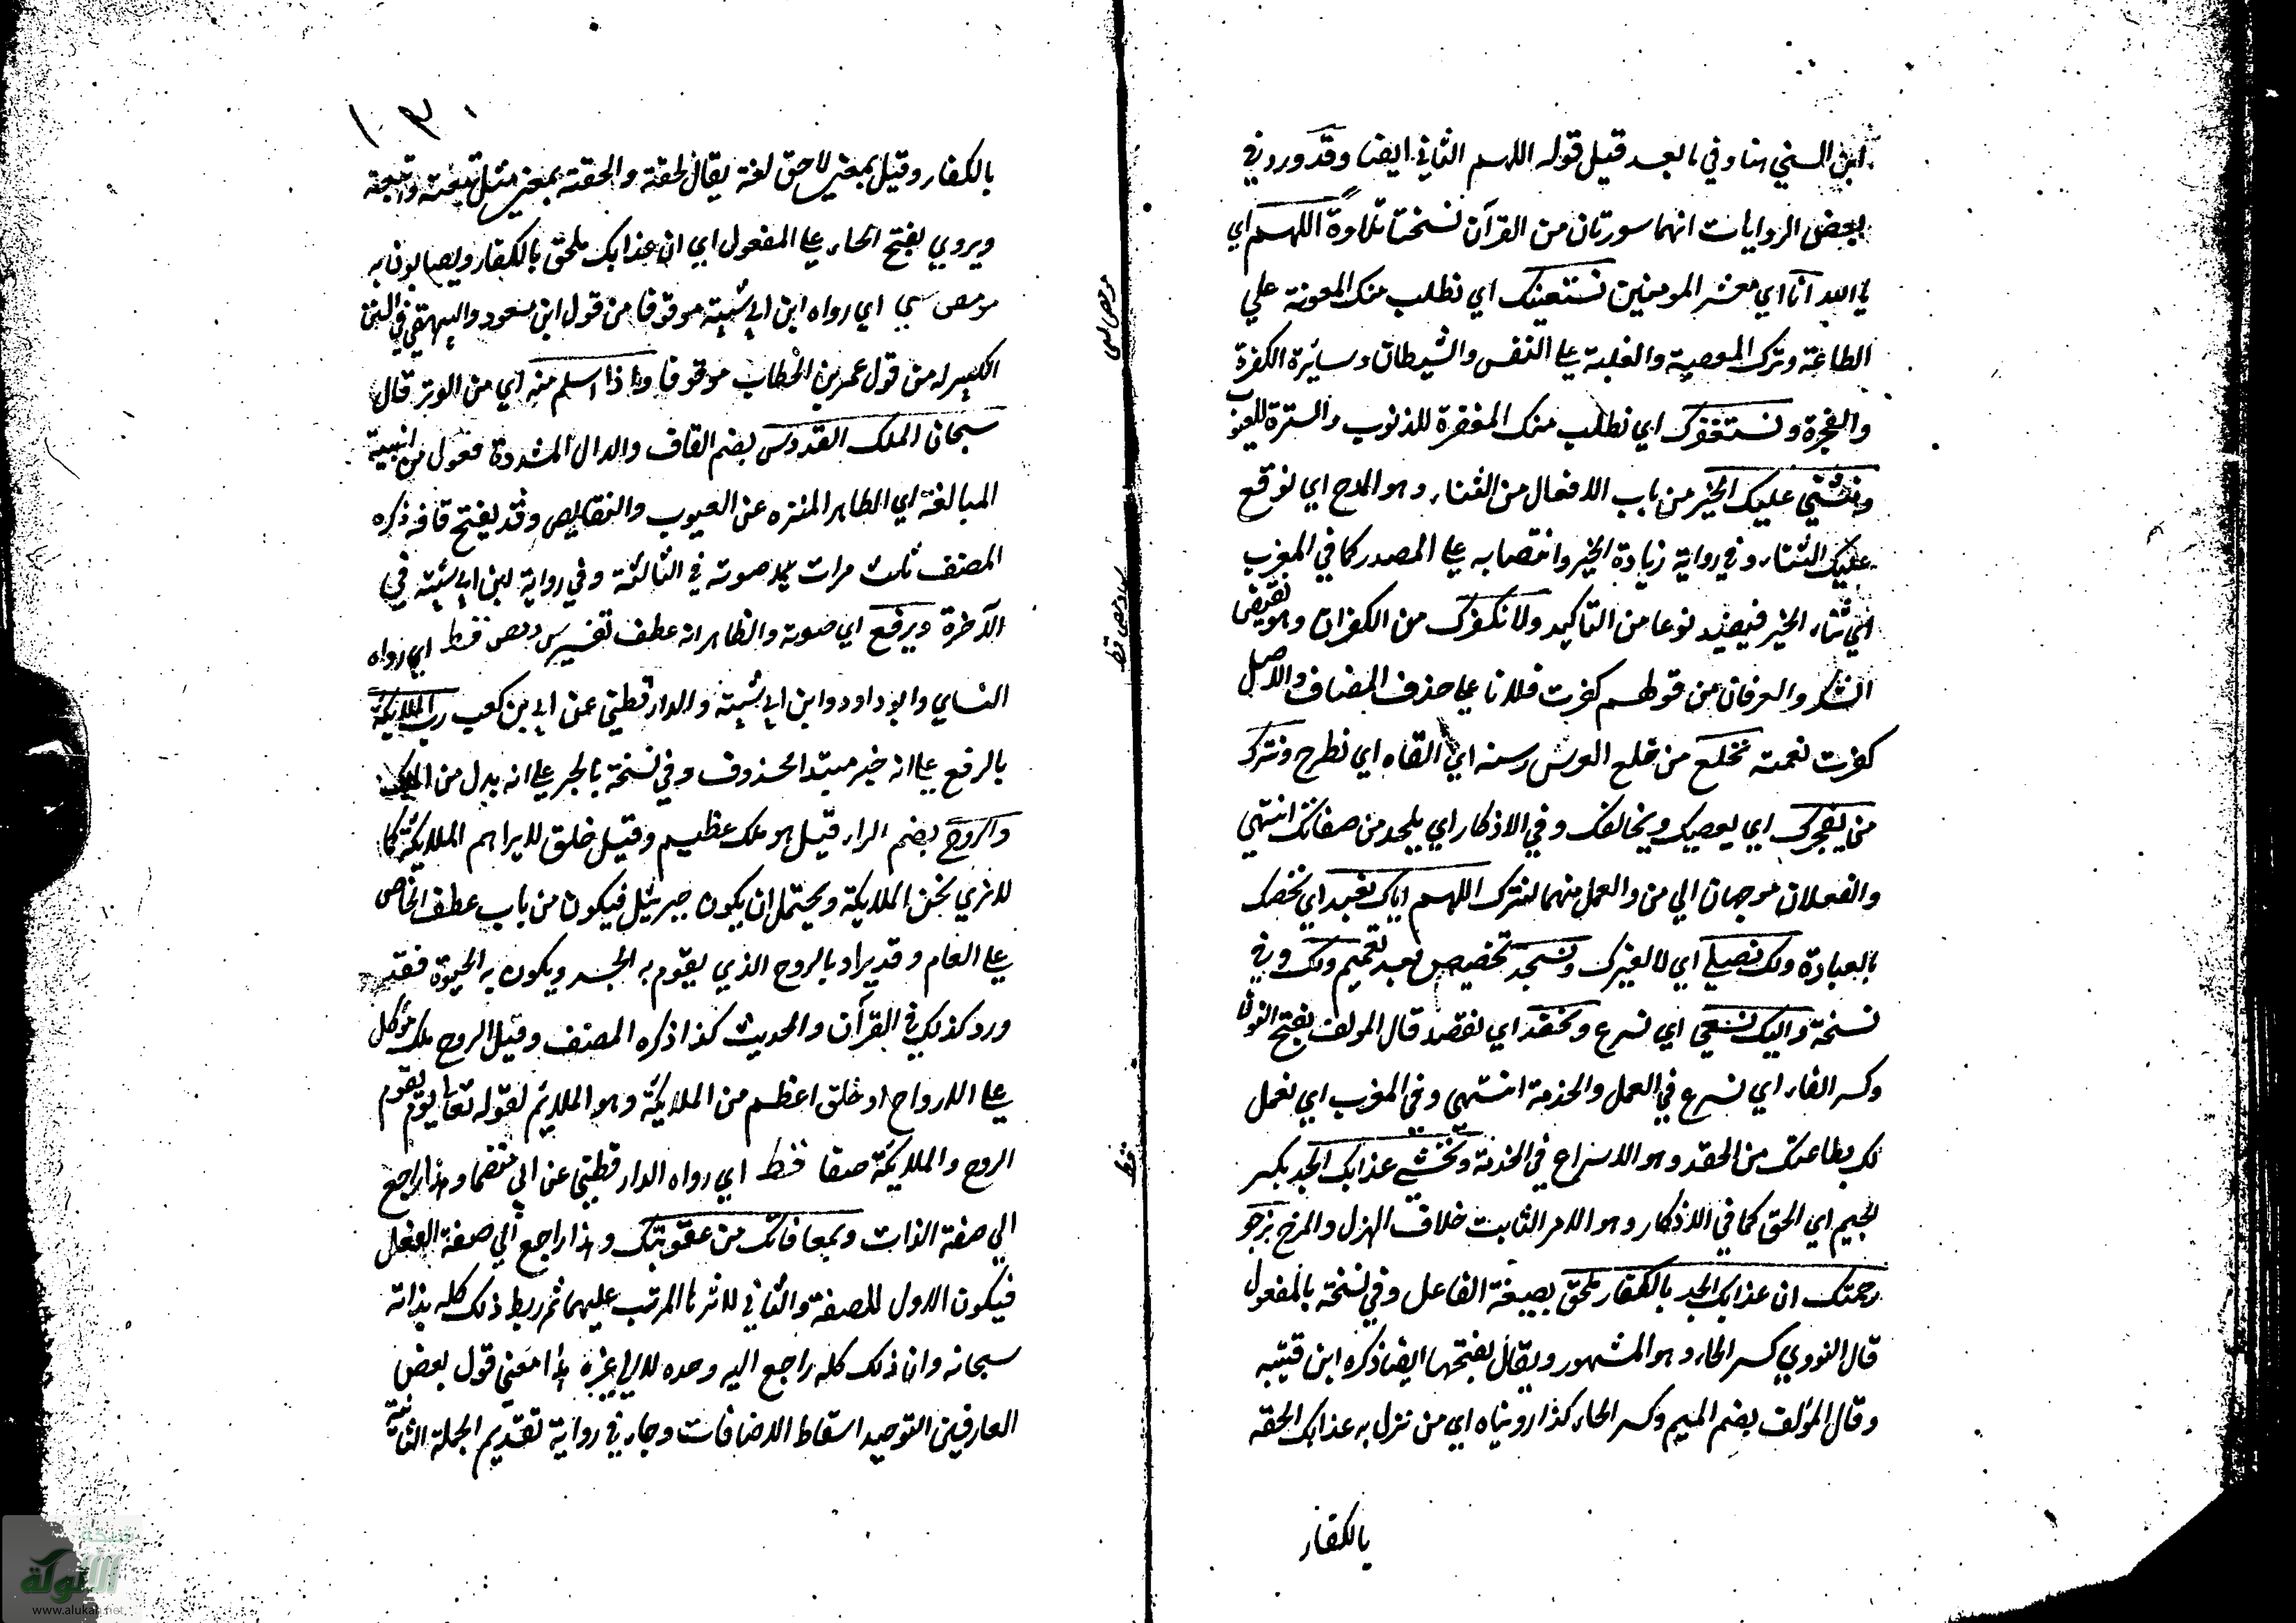 ابن السني هنا وفي ما بعد قيل قوله اللهم الثاني ايضا وقد ورد في
بعض الروايات انهما سورتان من القرآن نسختا تلاوة اللهم اي
يا الله انا اي معشر المومنين نستعينك اي نطلب منك المعونة علي
الطاعة وترك المعصية والغلبة علي النفس والشيطان وسائرة الكفرة
والفجرة ونستغفرك اي نطلب منك المغفرة للذنوب والسترة للعيوب
ونثني عليك الخير من باب الافعال من الثناء وهو المدح اي نوقع
عليك الثناء وفي رواية زيادة الخير وانتصابه علي المصدر كما في المغرب
اي ثناء الخير فيفيد نوعا من التأكيد ولا نكفرك من الكفران وهو نقيض
الشكر والعرفان من قولهم كفرت فلانا علي حذف المضاف والاصل
كفرت نعمته نخلع من خلع الفرس رسنه اي القاه اي نطرح ونترك
من يفجرك اي يعصيك ويخالفك وفي الاذكار اي يلحد من صفاتك انتهي
والفعلان موجهان الي من والعمل منهما لنترك اللهم اياك نعبد اي نخصك
بالعبادة ولك نصلي اي لا لغيرك ونسجد تخصيص بعد تعميم ولك وفي
نسخة واليك نسعي اي نسرع ونحفد اي نقصد قال المولف بفتح النون
وكسر الفاء اي نسرع في العمل والخدمة انتهي وفي المغرب اي نعمل
لك بطاعتك من الحفد وهو الاسراع في الخدمة ونخشي عذابك الجد بكسر
الجيم اي الحق كما في الاذكار وهو الامر الثابت خلاف الهزل والمزح نرجو
رحمتك ان عذابك الجد بالكفار ملحق بصيغة الفاعل وفي نسخة بالمفعول
قال النووي كسر الحاء وهو المشهور ويقال بفتحها ايضا ذكره ابن قتيبه
وقال المؤلف بضم الميم وكسر الحاء كذا رويناه اي من نزل به عذابك الحقه
بالكفار
مو مص سي
س د مص قط
قط
١٠٣
بالكفار وقيل بمعني لاحق لغة يقال لحقته والحقته بمعني مثل تبعته واتبعته
ويروي بفتح الحاء علي المفعول اي ان عذابك ملحق بالكفار ويصابون به
مو مص سي اي رواه ابن ابي شيبة موقوفا من قول ابن مسعود والبيهقي في السنن
الكبير له من قول عمر بن الخطاب موقوفا واذا سلم منه اي من الوتر قال
سبحان الملك القدوس بضم القاف والدال المشددة فعول من ابنية
المبالغة اي الطاهر المنزه عن العيوب والنقايص وقد يفتح قافه ذكره
المصنف ثلث مرات يمد صوته في الثالثة وفي رواية لابن ابي شيبة في
الآخرة ويرفع اي صوته والظاهر انه عطف تفسير س د مص قط اي رواه
النساي وابو داود وابن ابي شيبة والدار قطني عن ابي بن كعب رب الملايكة
بالرفع علي انه خبر مبتدا محذوف وفي نسخة بالجر علي انه بدل من الملك
والروح بضم الراء قيل هو ملك عظيم وقيل خلق لا يراهم الملايكة كما
لا نري نحن الملايكة ويحتمل ان يكون جبرئيل فيكون من باب عطف الخاص
علي العام وقد يراد بالروح الذي يقوم به الجسد ويكون به الحيوة فقد
ورد كذلك في القرآن والحديث كذا ذكره المصنف وقيل الروح ملك موكل
علي الارواح او خلق اعظم من الملايكة وهو الملايم لقوله تعالي يوم يقوم
الروح والملايكة صفا قط اي رواه الدار قطني عن ابي وهذا راجع
الي صفة الذات وبمعافاتك من عقوبتك وهذا راجع الي صفة الفعل
فيكون الاول للصفة والثاني للاثر المرتب عليهما ثم ربط ذلك كله بذاته
سبحانه وان ذلك كله راجع اليه وحده لا الي غيره هذا معني قول بعض
العارفين التوحيد اسقاط الاضافات وجاء في رواية تقديم الجملة الثانية
شبكة
الألوكة
www.alukah.net